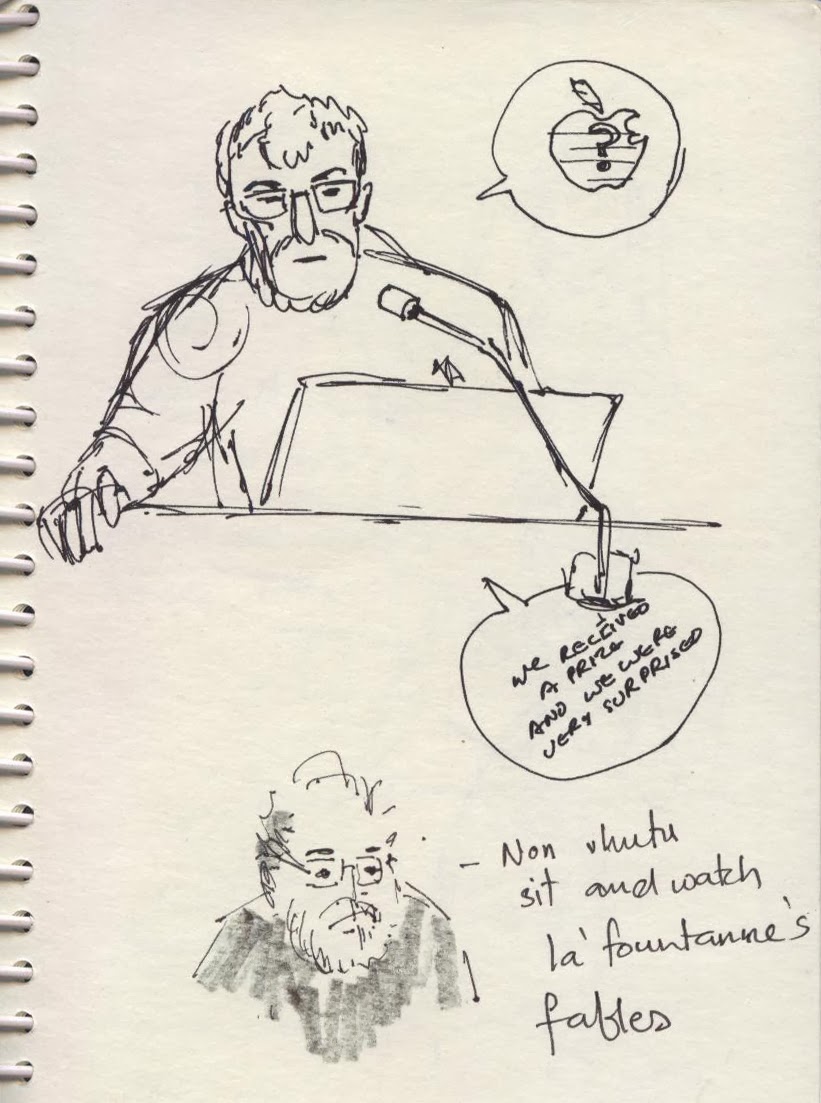 ?
WE RECEIVED
A PRIZE
AND WE WERE
VERY SURPRISED
- Non
sit and watch
la' fountanne's
fables